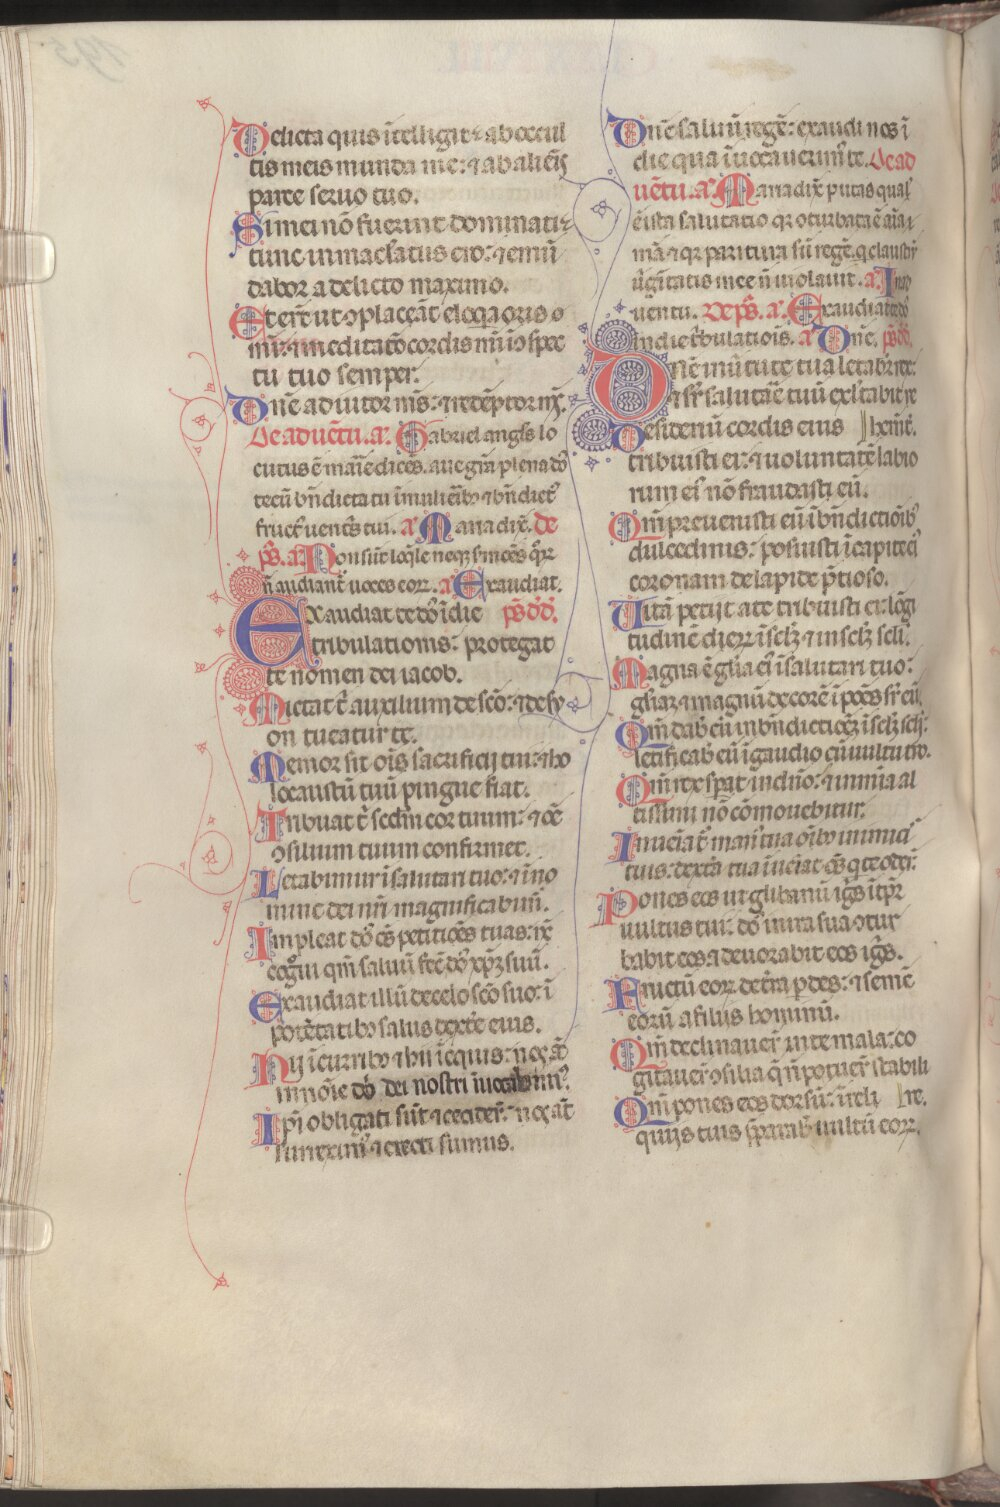 Delicta quis ītelligit: ab occul
tis meis munda me: ⁊ ab alieis
parce seruo tuo.
Si mei nō fuerint dominati:
tunc inmaclatus ero: ⁊ emū
dabor a delicto maximo.
Et erūt ut ꝯplaceāt eloq̄a oris
mī: ⁊ meditatō cordis mī ī ꝯspec
tu tuo semper.
Dn̄e adiutor m̄s: ⁊ redēptor m̄s.
De aduētu. a. Gabriel angl̄s lo
cutus ē marīe dicēs. aue gr̄a plena dō
tecū bn̄dicta tu ī mulierib⁊ ⁊ bn̄dict
fruct uentris tui. a. Maria dix̄. De
ps̄. a. Non sūt loq̄le neq sermōes q̄ꝝ
n̄ audiant uoces eoꝝ. a Exaudiat.
Exaudiat te dō ī die ps̄ dd̄.
tribulationis: protegat
te nomen dei iacob.
Mictat t auxilium de scō: ⁊ de sy
on tueatur te.
Memor sit oīs sacrificij tui: ⁊ ho
locaustū tuū pingue fiat.
Tribuat t scdm cor tuum: ⁊ oē
ꝯsilium tuum confirmet.
Letabimur ī salutari tuo: ⁊ ī no
mine dei nr̄i magnificabim̄.
Impleat dō oēs petitiōes tuas: ...
cogui qm̄ saluū fecit dō xp̄m suū.
Exaudiat illū de celo scō suo: ī
potētatib⁊ salus dextre eius.
Hij ī currib⁊ ⁊ hii ī equis: nos aū
in noīe dn̄i dei nostri īuocabim⁊.
Ipi obligati sūt ⁊ cecider̄: nos aūt
surexim⁊ ⁊ erecti sumus.
Dn̄e saluū fac regē: exaudi nos ī
die qua īuocauerim⁊ te. De ad
uētu. a. Maria dix̄ putas qual
ē ista salutatio qr ꝯturbata ē aīa
mā ⁊ qr paritura sū regē. q claustꝝ
uirginitatis mee n̄ uiolauit. a. In ad
uentu. De ps̄. a. Exaudiat te dō
in die tribulatiōis. a Dn̄e. ps̄ dd̄.
Dn̄e in uirtute tua letabit rex:
⁊ sr̄ salutare tuū exltabit
Desiderium cordis eius hemēt.
tribuisti ei: ⁊ uoluntatē labio
rum ei⁊ nō fraudasti eū.
Qm̄ preuenisti eū ī bn̄dictiōib⁊
dulcedinis: posuisti ī capite ei⁊
coronam de lapide p̄tioso.
Uitā petijt a te tribuisti ei: lōgi
tudinē dieꝝ ī sclm ⁊ in sclm scli.
Magna ē glīa ei⁊ ī salutari tuo:
glīaꝫ ⁊ magnū decorē īpōes sr̄ eū.
Qm̄ dab eū in bn̄dictiōem ī sclm scli:
letificab eū ī gaudio cū uultu tuo.
Qm̄ rex sperat in dn̄o: ⁊ in mīa al
tissimi nō cōmouebitur.
Inueniat man⁊ tua oīb⁊ inimicis
tuis: dextra tua īueniat oēs q te oder̄.
Pones eos ut glibanū igis ī tp̄r
uultus tui: dō in ira sua ꝯtur
babit eos ⁊ deuorabit eos igis.
Fructū eoꝝ de tr̄a ꝑdes: ⁊ semē
eorū a filiis hominū.
Qm̄ declinauer̄ in te mala: co
gitauer̄ ꝯsilia q n̄ potuer̄ stabili
Qm̄ pones eos dorsū: ī reli re.
quijs tuis p̄parab uultū eoꝝ.